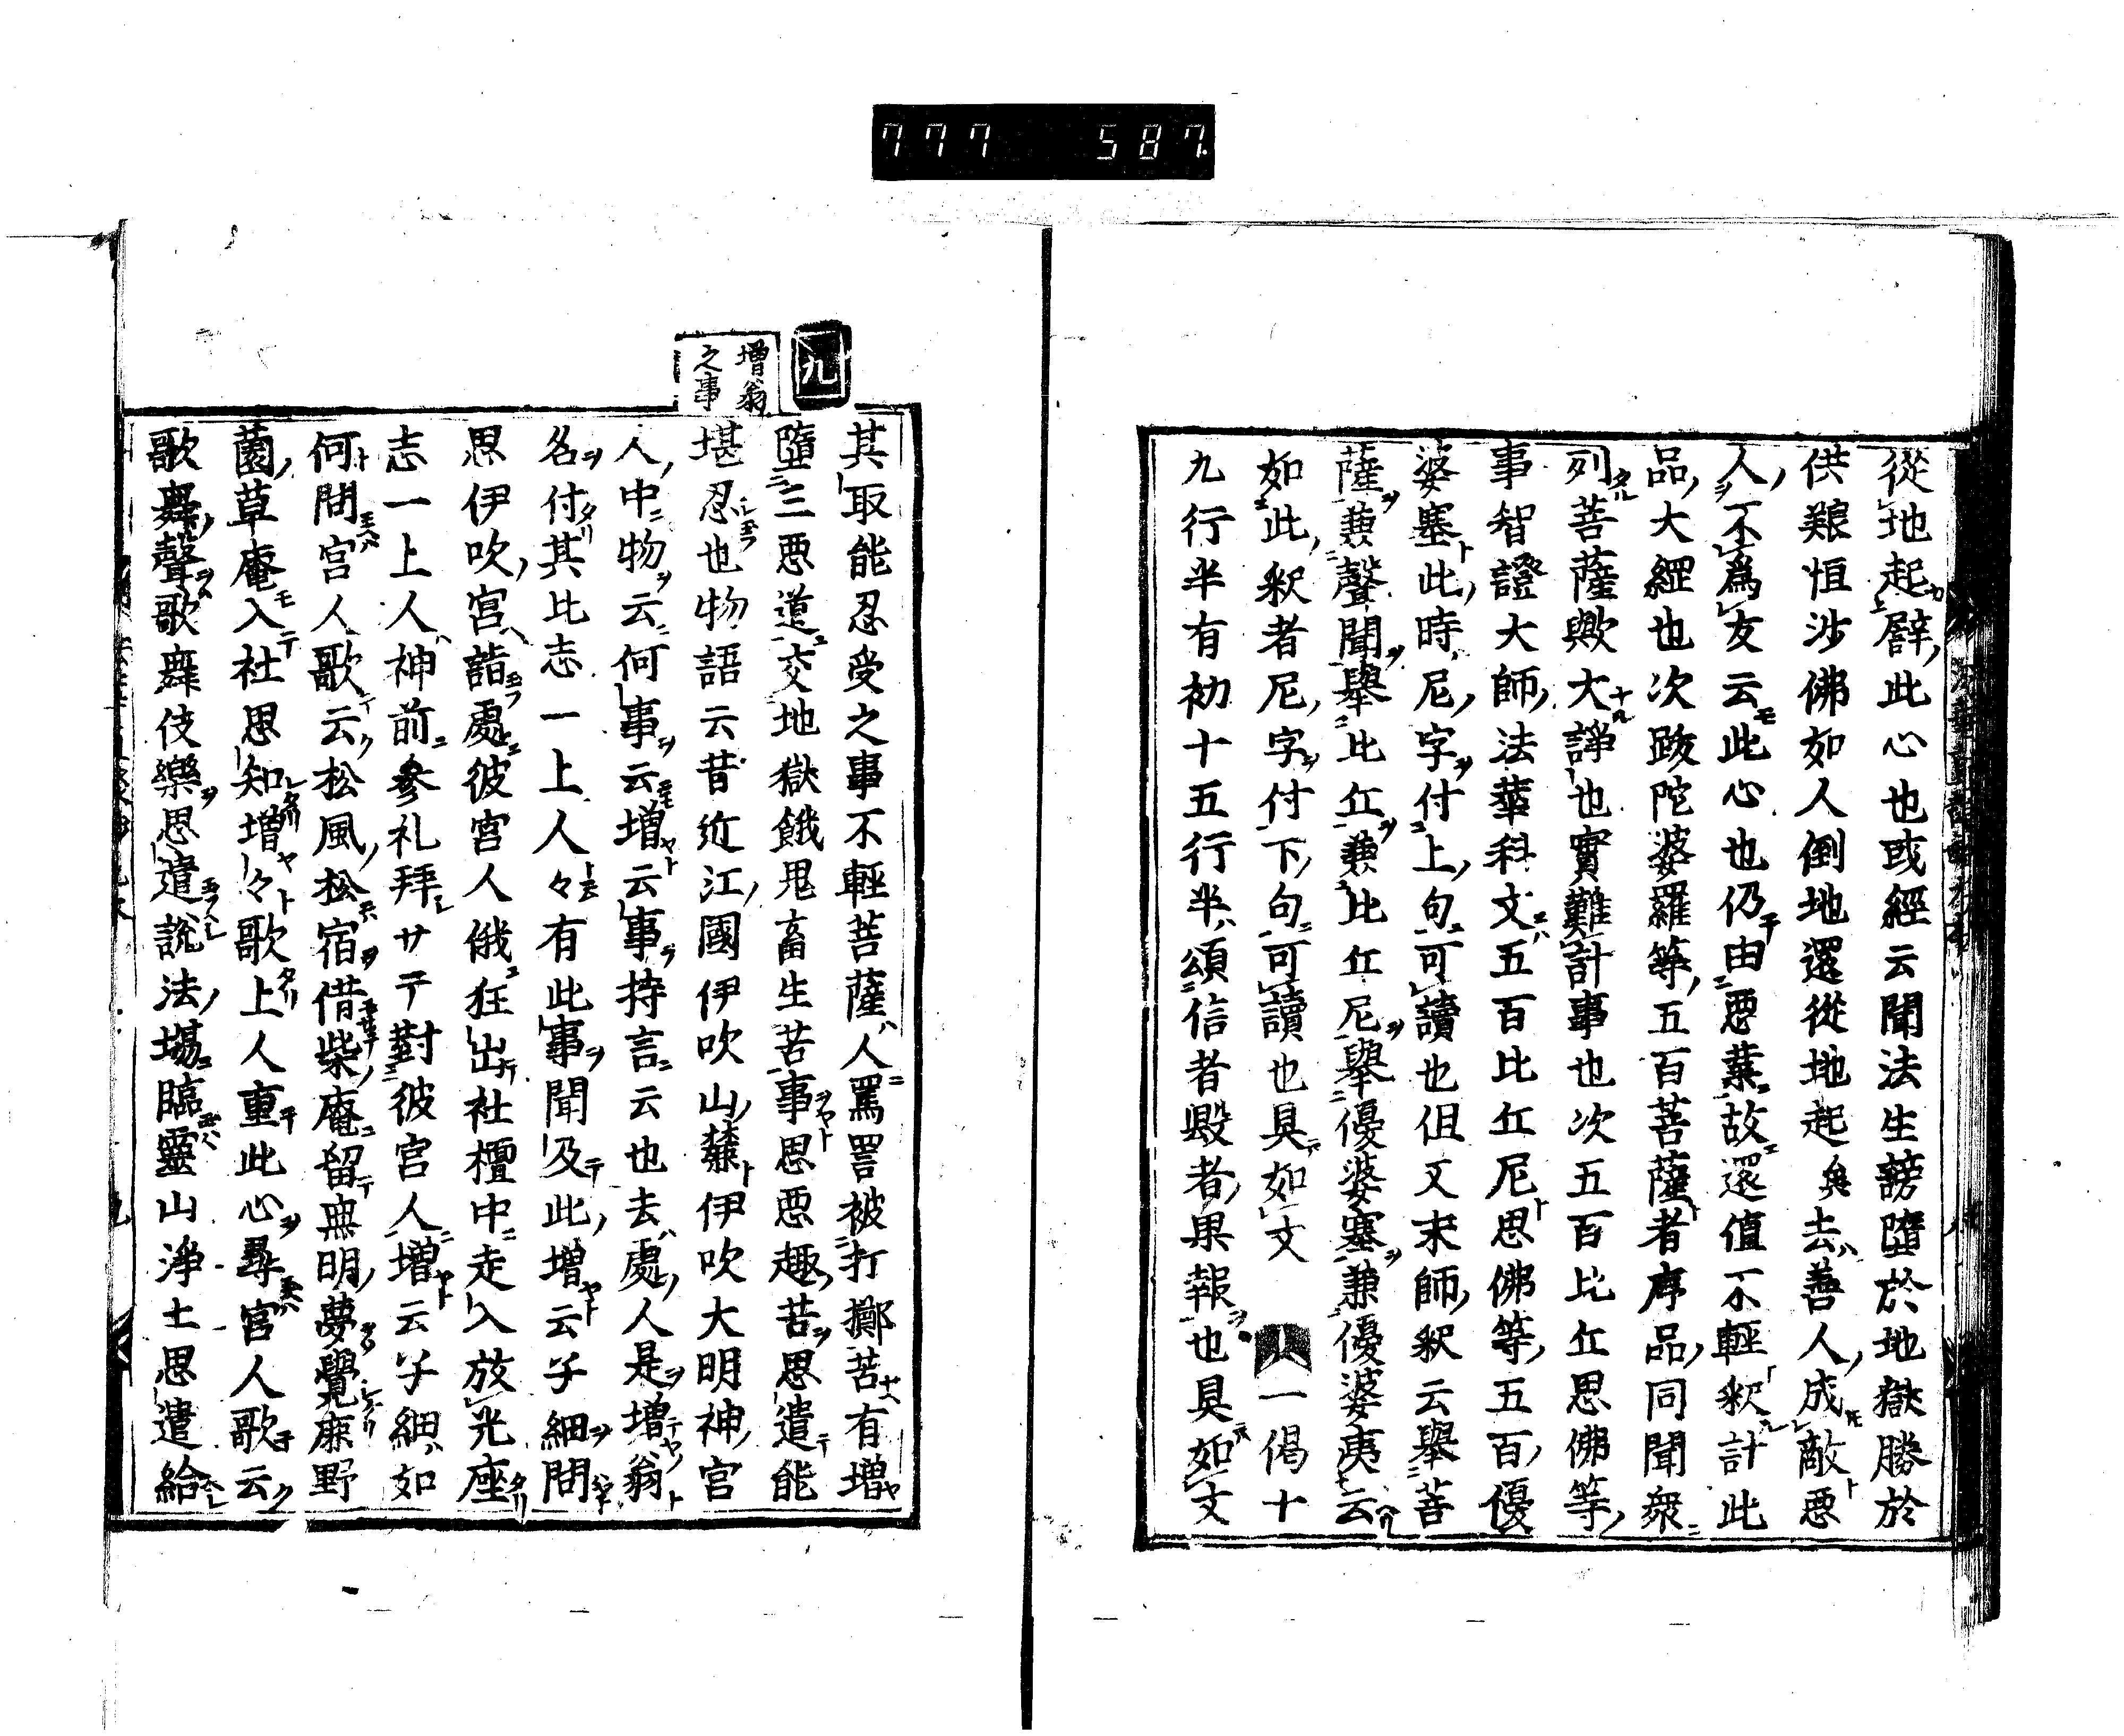 777 587
從地起譬此心也或經云聞法生謗墮於地獄勝於
供艱恒沙佛如人倒地還從地起矣去善人成敵惡
人不爲友云此心也仍由惡業故還值不輕釈計此
品大經也次跋陀婆羅等五百菩薩者序品同聞衆
列菩薩歟大諍也實難計事也次五百比丘思佛等
事智證大師法華科文五百比丘尼思佛等五百優
婆塞此時尼字付上句可讀也但又末師釈云舉菩
薩兼聲聞舉比丘兼比丘尼舉優婆塞兼優婆夷云
如此釈者尼字付下句可讀也具如文 一偈十
九行半有初十五行半頌信者毀者果報也具如文
九
增翁
之事
其取能忍受之事不輕菩薩人罵詈被打擲苦有增
墮三惡道交地獄餓鬼畜生苦事思惡趣苦思遣能
堪忍也物語云昔近江國伊吹山麓伊吹大明神宮
人中物云何事云增云事持言云也去處人是增翁
名付其比志一上人々有此事聞及此增云子細問
思伊吹宮詣處彼宮人俄狂出社檀中走入放光座
志一上人神前參礼拜サテ對彼宮人增云子細如
何問宮人歌云松風松宿借柴庵留無明夢覺麻野
薗草庵入社思知增々歌上人重此心尋宮人歌云
歌舞聲歌舞伎樂思遣說法場臨靈山淨土思遣給